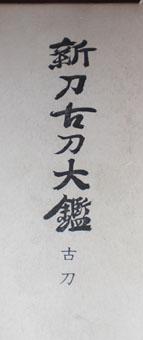 新刀古刀大鑑
古刀